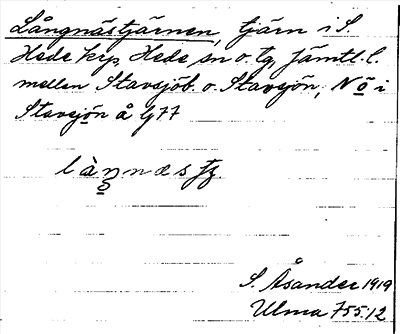 Långnästjärnen, tjärn i S.
Hede krp, Hede sn o. tg, Jämtl. l.
mellan Stavsjöb. o. Stavsjön; N ö i
Stavsjön å G 77
S. Åsander 1919
Ulma 755:12